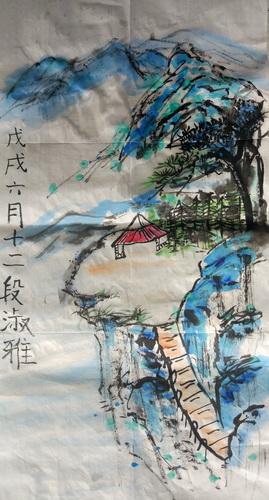 戊戌六月十二段淑雅